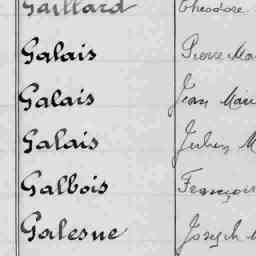 Gaillard Théodore
Galais Pierre Ma
Galais Jean Mari
Galais Julien M
Galbois François
Galesne Joseph